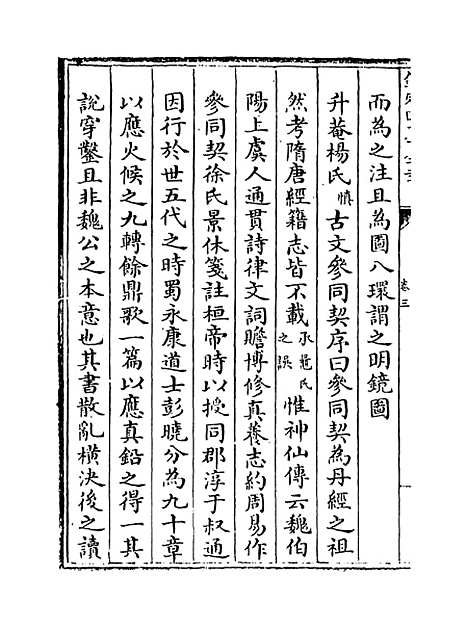 而為之注且為圖八環謂之明鏡圖
升菴楊氏慎古文參同契序曰參同契為丹經之祖
然考隋唐經籍志皆不載承鼂氏之誤惟神仙傳云魏伯
陽上虞人通貫詩律文詞贍博修真養志約周易作
參同契徐氏景休箋註桓帝時以授同郡淳于叔通
因行於世五代之時蜀永康道士彭曉分為九十章
以應火候之九轉餘鼎歌一篇以應真鉛之得一其
說穿鑿且非魏公之本意也其書散亂橫決後之讀
卷三